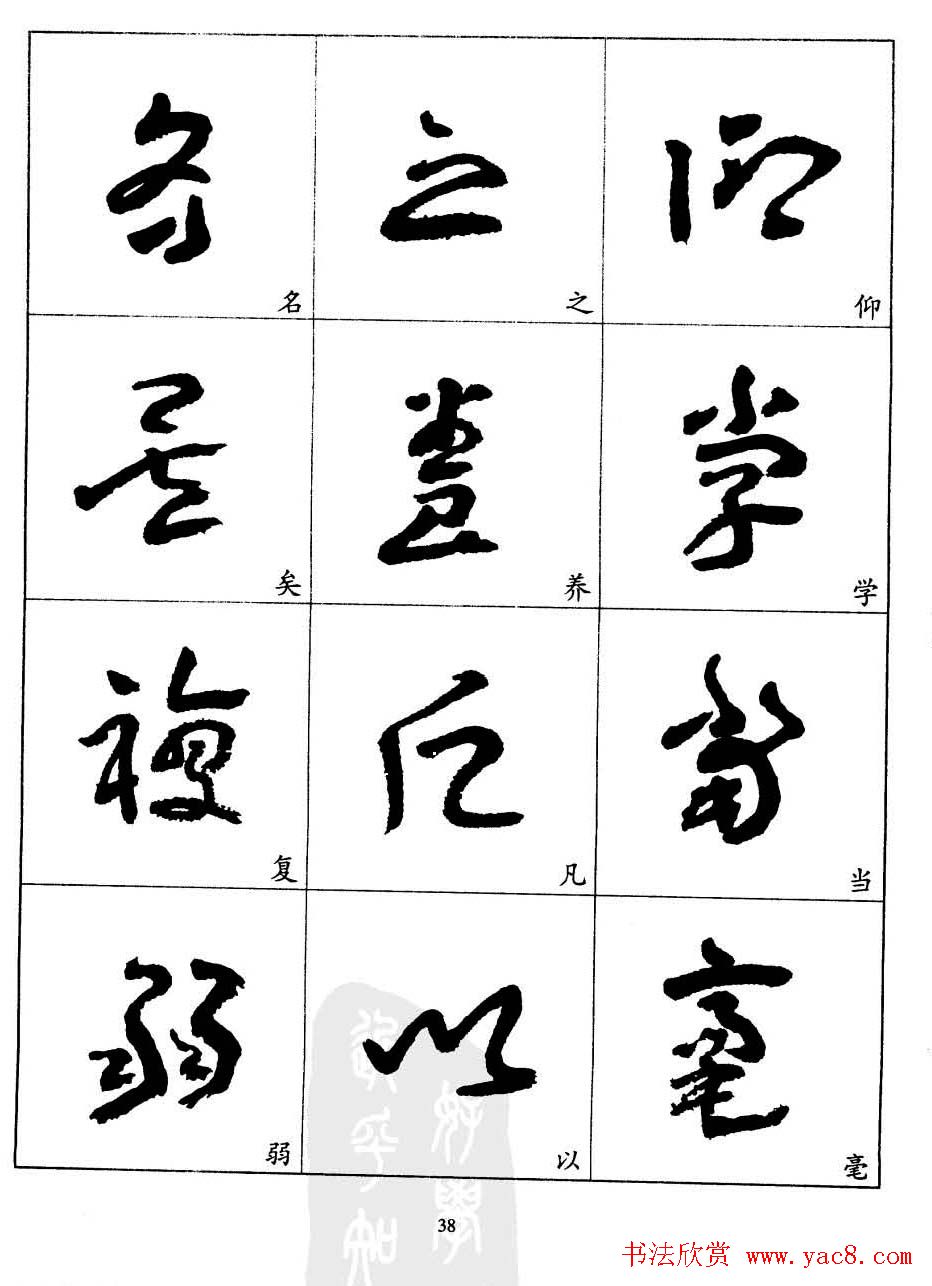 仰 仰
學 学
當 当
毫 毫
之 之
養 养
凡 凡
以 以
名 名
矣 矣
複 复
弱 弱
好學
38
书法欣赏 www.yac8.com